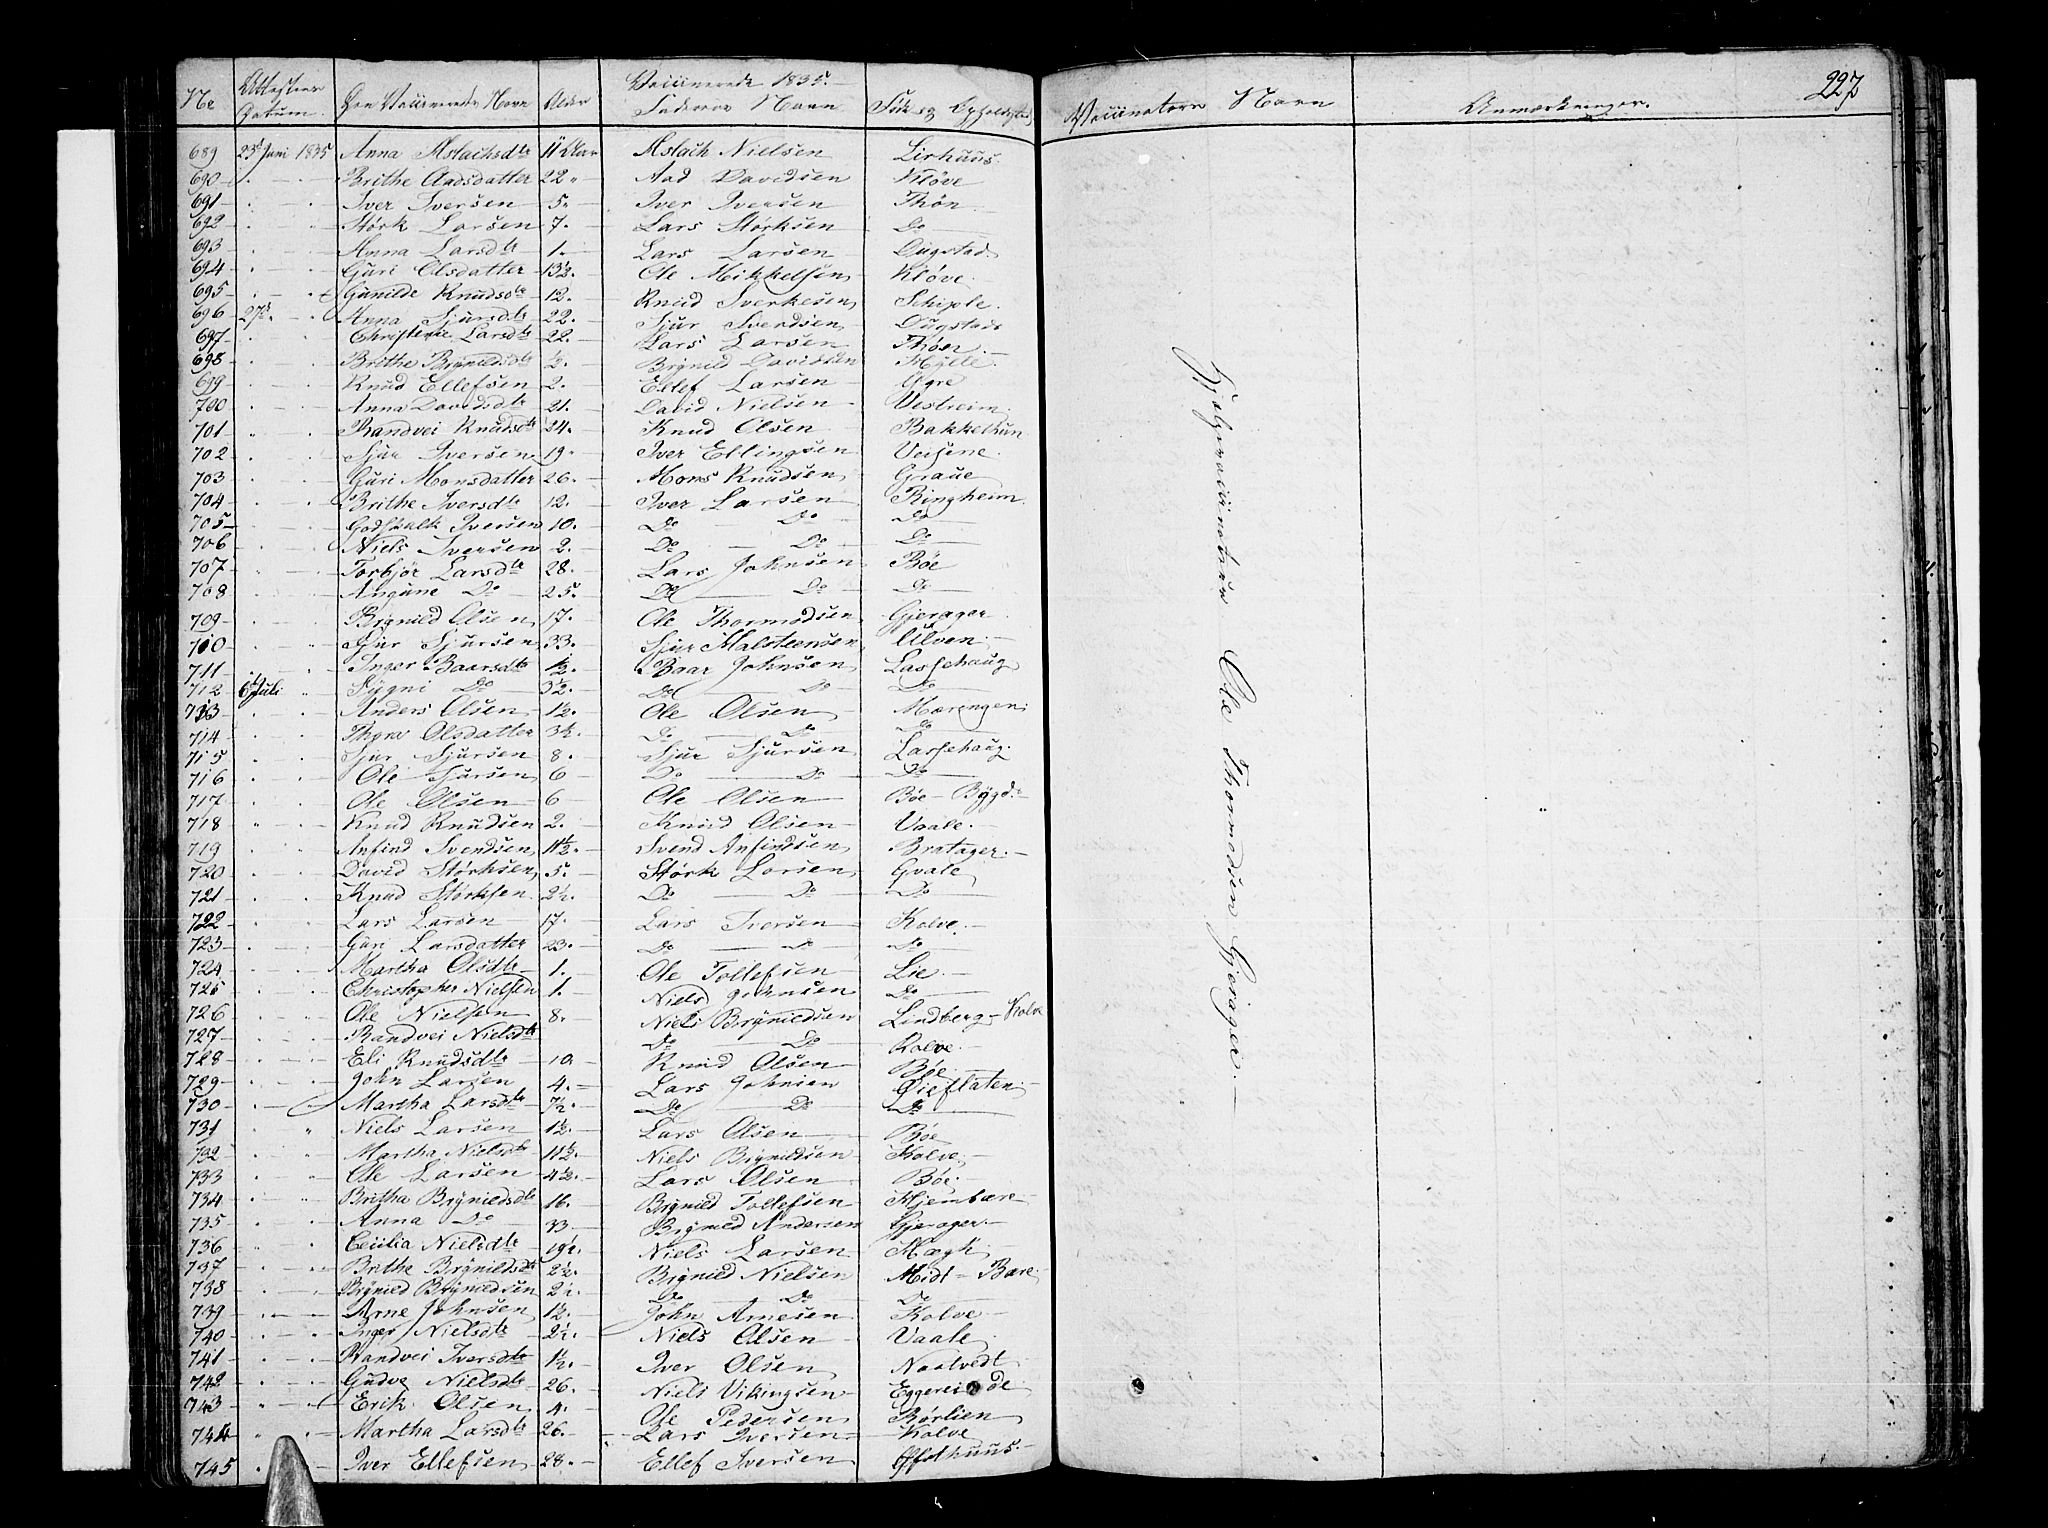 Vaccinerede 1835.
No Attestens Datum. Den Vaccineredes Navn Alder Faderens Navn Vaccinateurs Navn Anmærkninger. 227
689 23d Juni 1835 Anna Aslachsdtr 11 Aar Aslach Nielsen Lirhuus
690 Brithe Aadsdatter 22 Aad Davidsen Kløve
691 Iver Iversen 5. Iver Iversen Thøn
692 Størk Larsen 7. Lars Størksen Do
693 Anna Larsdtr 1. Lars Larsen Dugstad
694 Guri Olsdatter 13½. Ole Mikkelsen Kløve
695 Gunilde Knudsdtr 12. Knud Sverkesen Schiple
696 27d Anna Sjursdtr 22. Sjur Svendsen Dugstad
697 Christense Larsdtr 22. Lars Larsen Thøn
698 Brithe Brynildsdtr ½. Brynild Davidsen Hylle
699 Knud Ellefsen 2. Ellef Larsen
700 Anna Davidsdtr 21. David Nielsen Vestreim
701 Randvei Knudsdtr 24. Knud Olsen Bakkethun
702 Sjur Iversen 19. Iver Ellingsen Veisene
703 Guri Monsdatter 26. Mons Knudsen Graue
704 Brithe Iversdtr 12. Iver Larsen Ringheim
705 Godskalk Iversen 10. Do Do Do
706 Niels Iversen 2. Do Do Do
707 Torbjør Larsdtr 28. Lars Johnsen Bøe
708 Angune Do 25. Do Do Do
709 Brynild Olsen 17. Ole Thormodsen Gjerager
710 Sjur Sjursen 33. Sjur Malsteensen Ulven
711 Inger Baarsdtr 1½. Baar Johnsen Lassehaug
712 6d Juli Sygni Do 3½. Do Do Do
713 Anders Olsen 1½. Ole Olsen Mæringen
714 Olsdatter 3½. Do Do Do
715 Sjur Sjursen 8. Sjur Sjursen Lassehaug
716 Ole Sjursen 6 Do Do Do
717 Ole Olsen 6 Ole Olsen Bøe - Bygd.
718 Knud Knudsen 2. Knud Olsen Vaale
719 Anfind Svendsen 11½. Svend Anfindsen Bratager
720 David Størksen 5. Størk Larsen Gvale
721 Knud Størksen 2½. Do Do Do
722 Lars Larsen 17. Lars Iversen Kolve
723 Guri Larsdatter 23. Do Do Do
724 Martha Olsdtr 1. Ole Tollefsen Lie
725 Christopher Nielsen 1. Niels Johnsen Do
726 Ole Nielsen 8. Niels Brynildsen Lindberg - Kolve
727 Randvei Nielsdtr Do Do Kolve
728 Eli Knudsdtr 10 Knud Olsen Bøe
729 John Larsen 4. Lars Johnsen
730 Martha Larsdtr 7½. Do Do Do
731 Niels Larsen 1½. Lars Olsen Bøe
732 Martha Nielsdtr 11½. Niels Brynildsen Kolve
733 Ole Larsen 4½. Lars Olsen Bøe
734 Britha Brynildsdtr 16. Brynild Tollefsen Hjembære
735 Anna Do 33. Brynild Andersen Gjerager
736 Cecilia Nielsdtr 19½. Niels Larsen Mægk
737 Brithe Brynildsdtr 2½. Brynild Nielsen Midt = Bære
738 Brynild Brynildsen 2½. Do Do Do
739 Arne Johnsen 1½. John Arnesen Kolve
740 Inger Nielsdtr 2½. Niels Olsen Vaale
741 Randvei Iversdtr 1½. Iver Olsen Naatvedt
742 Gudve Nielsdtr 26. Niels Vikingsen Eggereide
743 Erik Olsen 4. Ole Pedersen Børlien
744 Martha Larsdtr 26. Lars Iversen Kolve
745 Iver Ellefsen 28. Ellef Iversen
Hjelpevaccinateur Ole Thormodsen Gjerager.